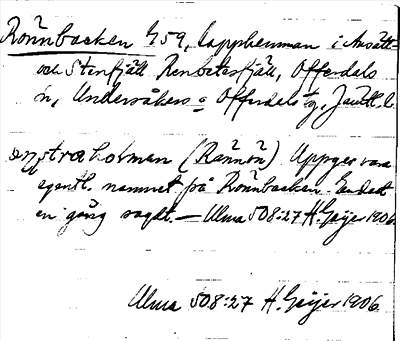 Rönnbacken 459, lapphemman i Ansätt-
och Stenfjäll Renbetesfjäll, Offerdals
sn, Undersåkers o Offerdals tg, Jämtl. l.
nystraholmen (Rännön) Uppges vara
egentl. namnet på Rönnbacken. Endast
en gång sagt. — Ulma 508:27 H. Geijer 1906.
Ulma 508:27 H. Geijer 1906